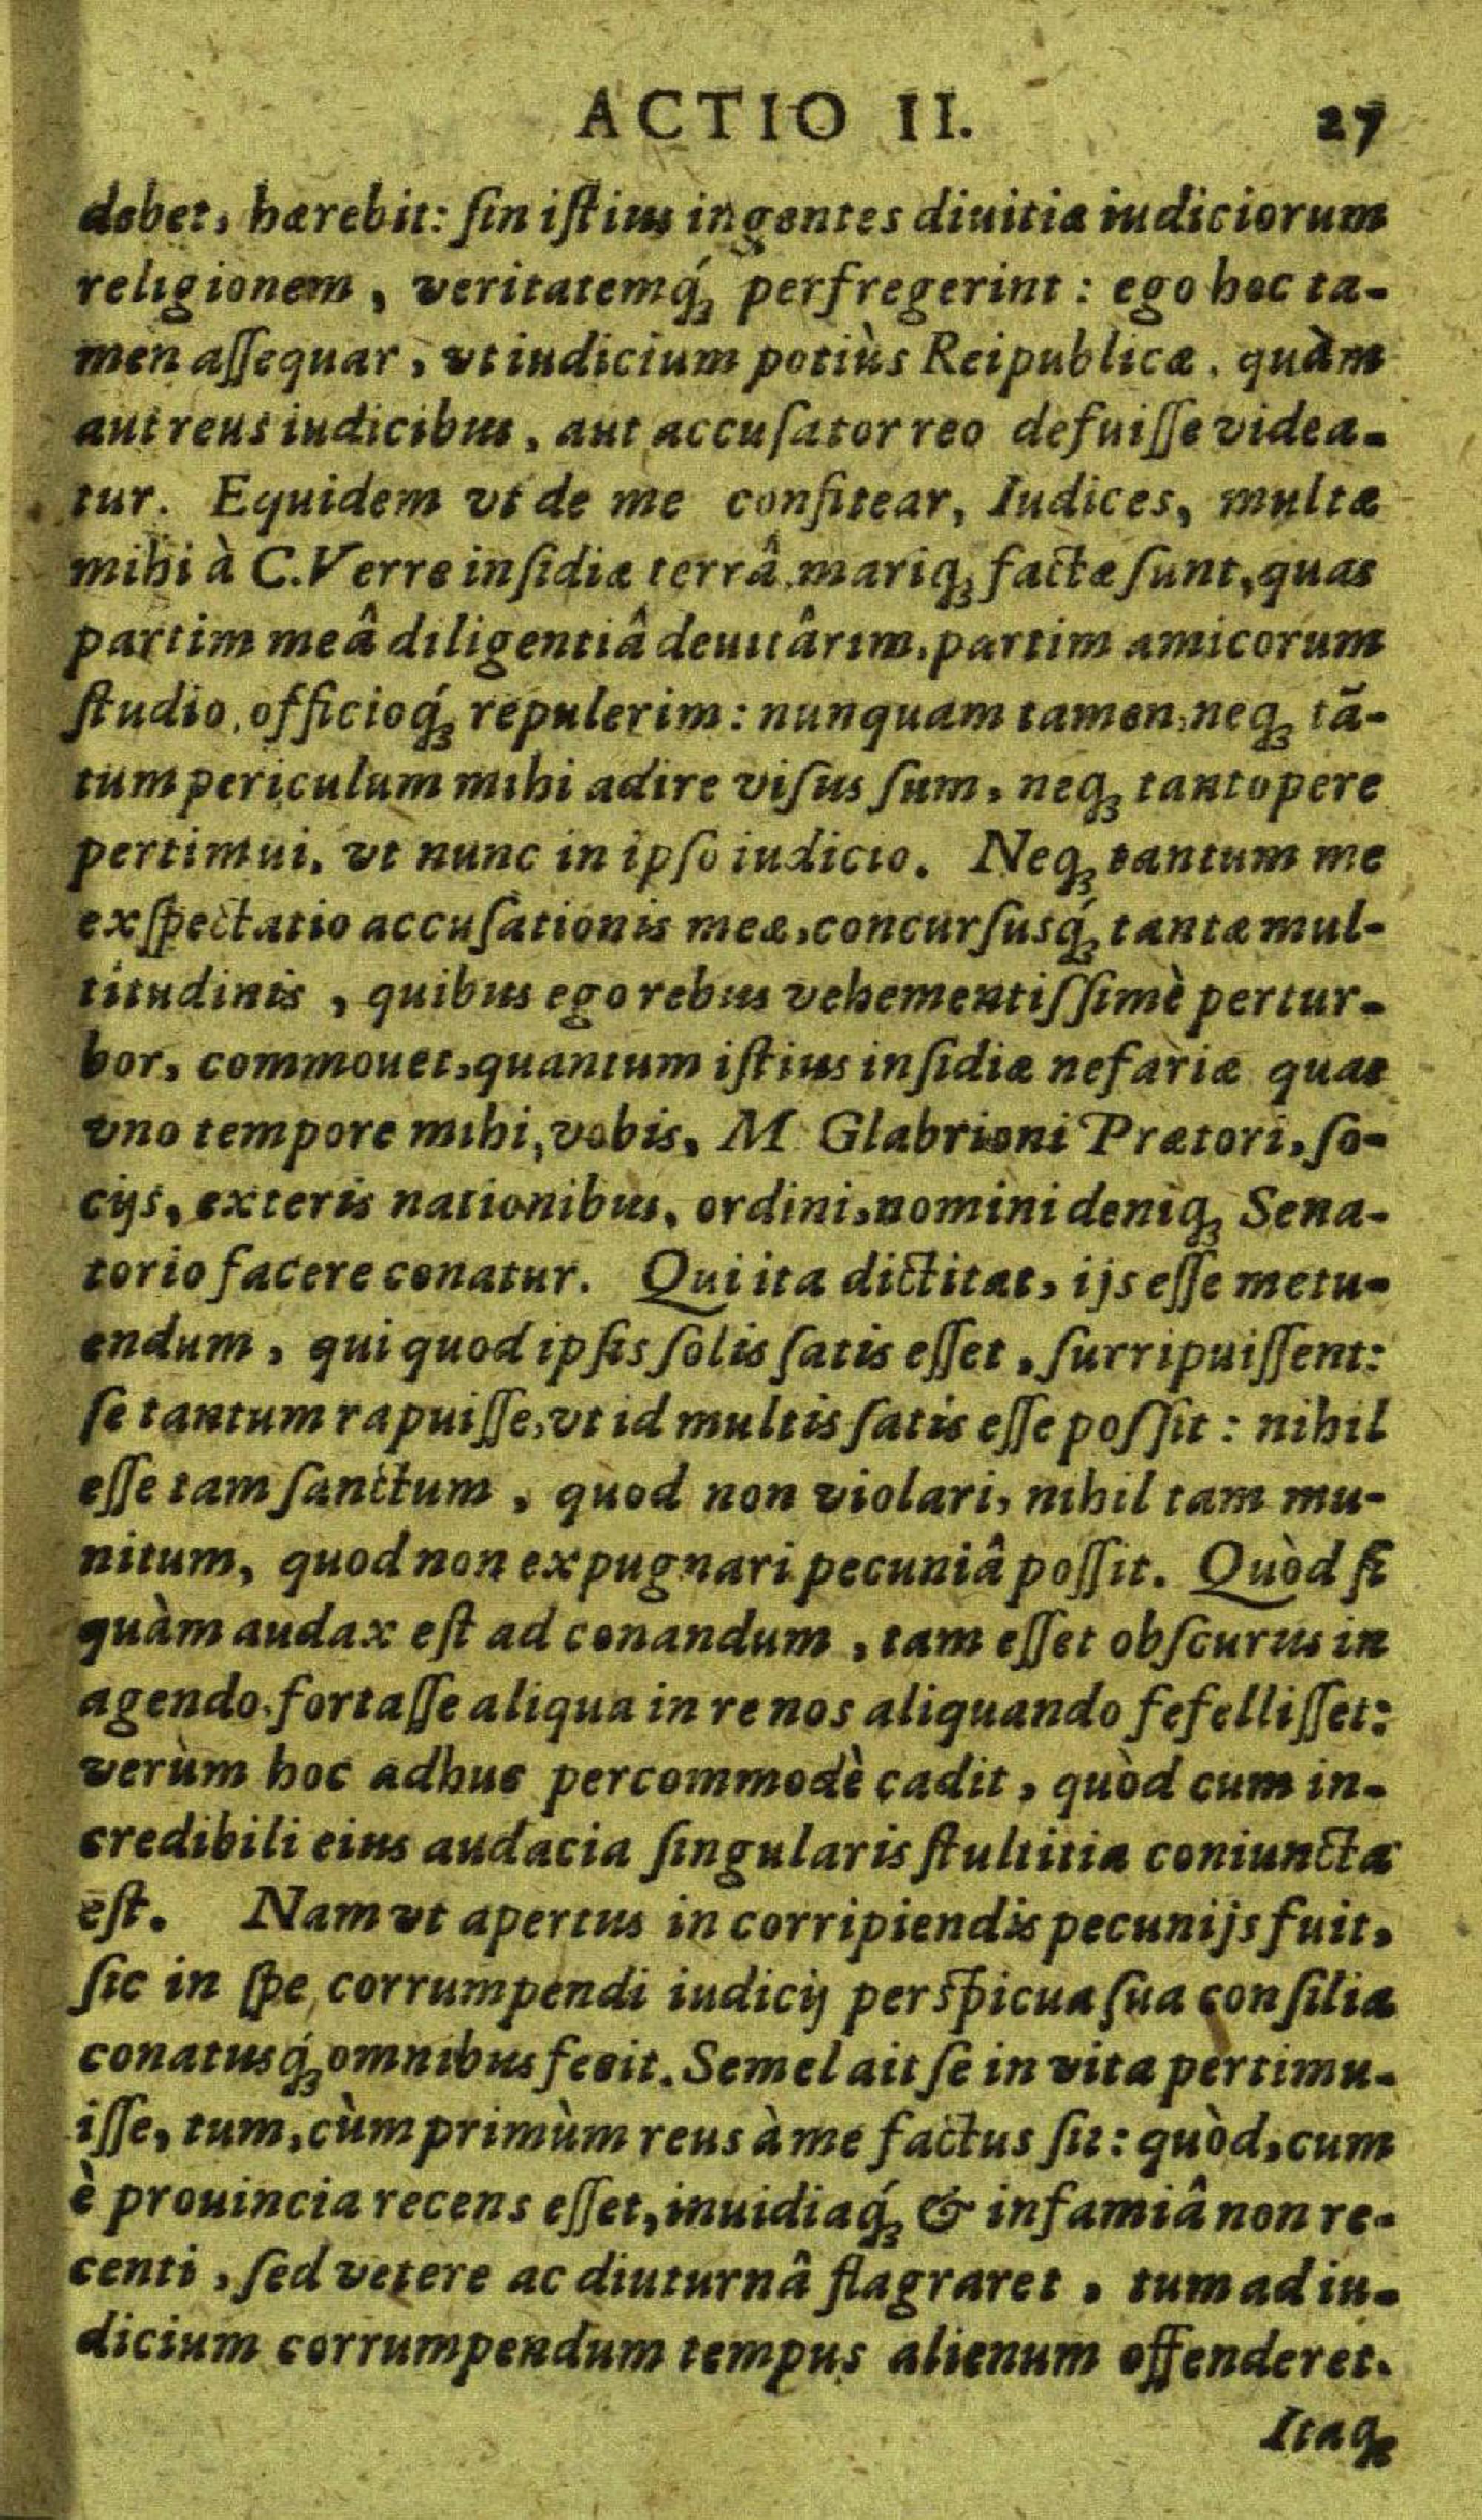 ACTIO II. 27
debet, hærebit: ſin iſtius ingentes diuitiæ iudiciorum
religionem, veritatemq́ꝫ perfregerint: ego hoc ta-
men aſſequar, vt iudicium potiùs Reipublicæ, quàm
aut reus iudicibus, aut accuſator reo defuiſſe videa-
tur. Equidem vt de me confitear, Iudices, multæ
mihi à C. Verre inſidiæ terrâ mariqꝫ factæ ſunt, quas
partim meâ diligentiâ deuitârim, partim amicorum
ſtudio, officioq́ꝫ repulerim: nunquam tamen neqꝫ tã-
tum periculum mihi adire viſus ſum, neqꝫ tantopere
pertimui, vt nunc in ipſo iudicio. Neqꝫ tantum me
exſpectatio accuſationis meæ, concurſusq́ꝫ tantæ mul-
titudinis, quibus ego rebus vehementiſſimè pertur-
bor, commouet, quantum iſtius inſidiæ nefariæ quas
vno tempore mihi, vobis, M Glabrioni Prætori, ſo-
cijs, exteris nationibus, ordini, nomini deniqꝫ Sena-
torio facere conatur. Qui ita dictitat, ijs eſſe metu-
endum, qui quod ipſis ſolis ſatis eſſet, ſurripuiſſent:
ſe tantum rapuiſſe, vt id multis ſatis eſſe poſſit: nihil
eſſe tam ſanctum, quod non violari, nihil tam mu-
nitum, quod non expugnari pecuniâ poſſit. Quòd ſi
quàm audax eſt ad conandum, tam eſſet obſcurus in
agendo, fortaſſe aliqua in re nos aliquando fefelliſſet:
verùm hoc adhuc percommodè cadit, quòd cum in-
credibili eius audacia ſingularis ſtultitia coniuncta
eſt. Nam vt apertus in corripiendis pecunijs fuit,
ſic in ſpe corrumpendi iudicij perſpicua ſua conſilia
conatusq́ꝫ omnibus fecit. Semel ait ſe in vita pertimu-
iſſe, tum, cùm primùm reus à me factus ſit: quòd, cum
è prouincia recens eſſet, inuidiaq́ꝫ & infamiâ non re-
centi, ſed vetere ac diuturnâ flagraret, tum ad iu-
dicium corrumpendum tempus alienum offenderet.
Itaqꝫ